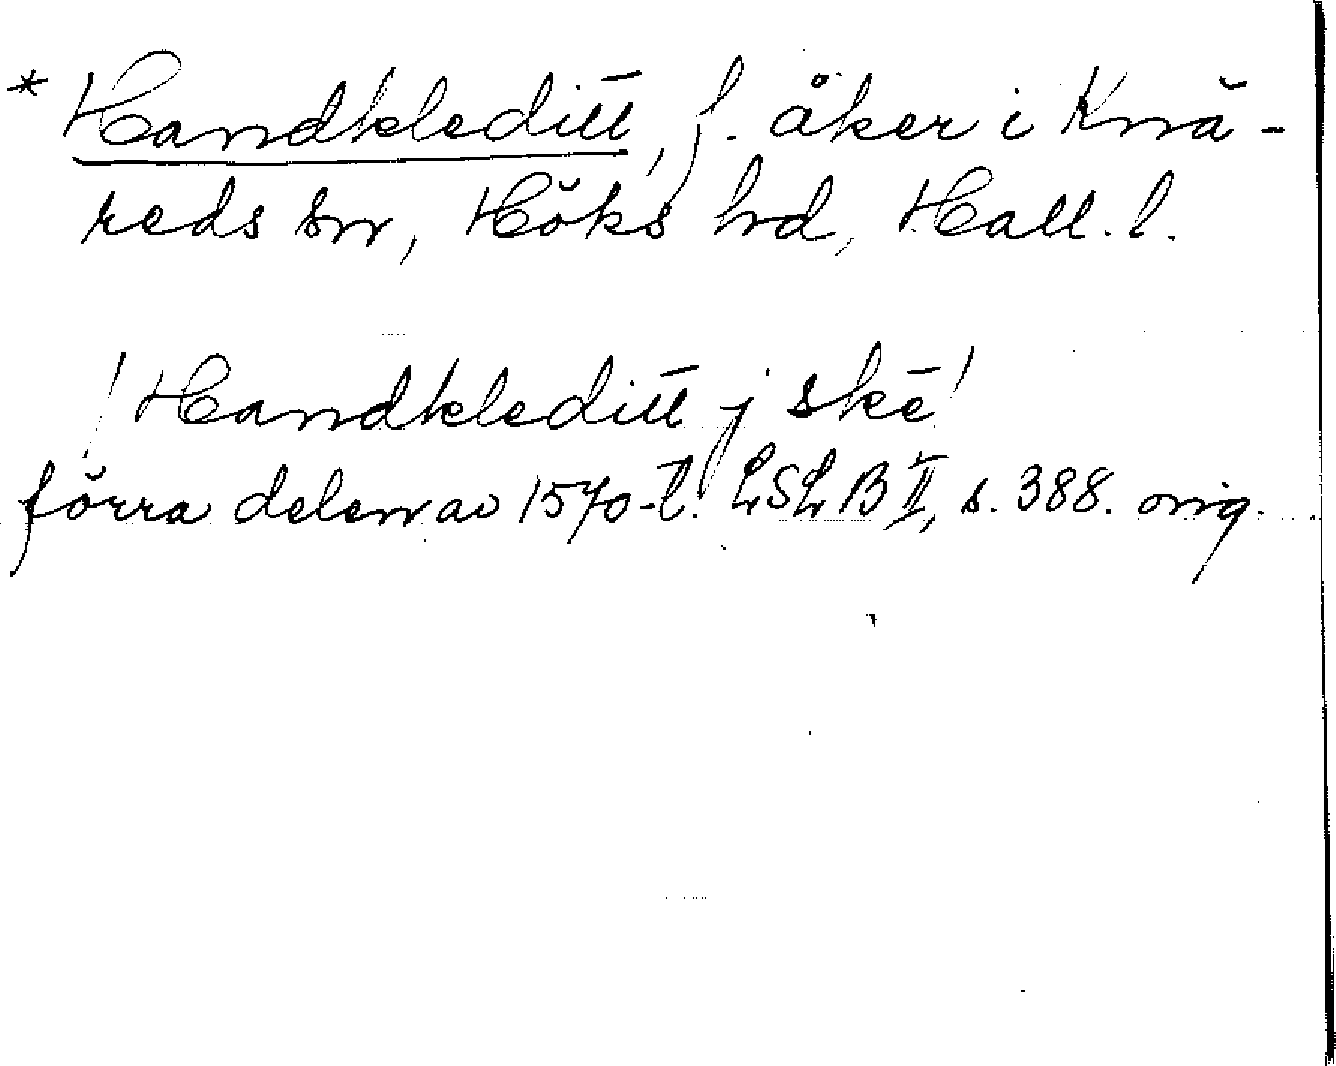 * Handkleditt, f. åker i Knä-
reds sn, Höks hd, Hall. l.
! Handkleditt j skē !
förra delen av 1570-t. LSLB II, s. 388. orig.